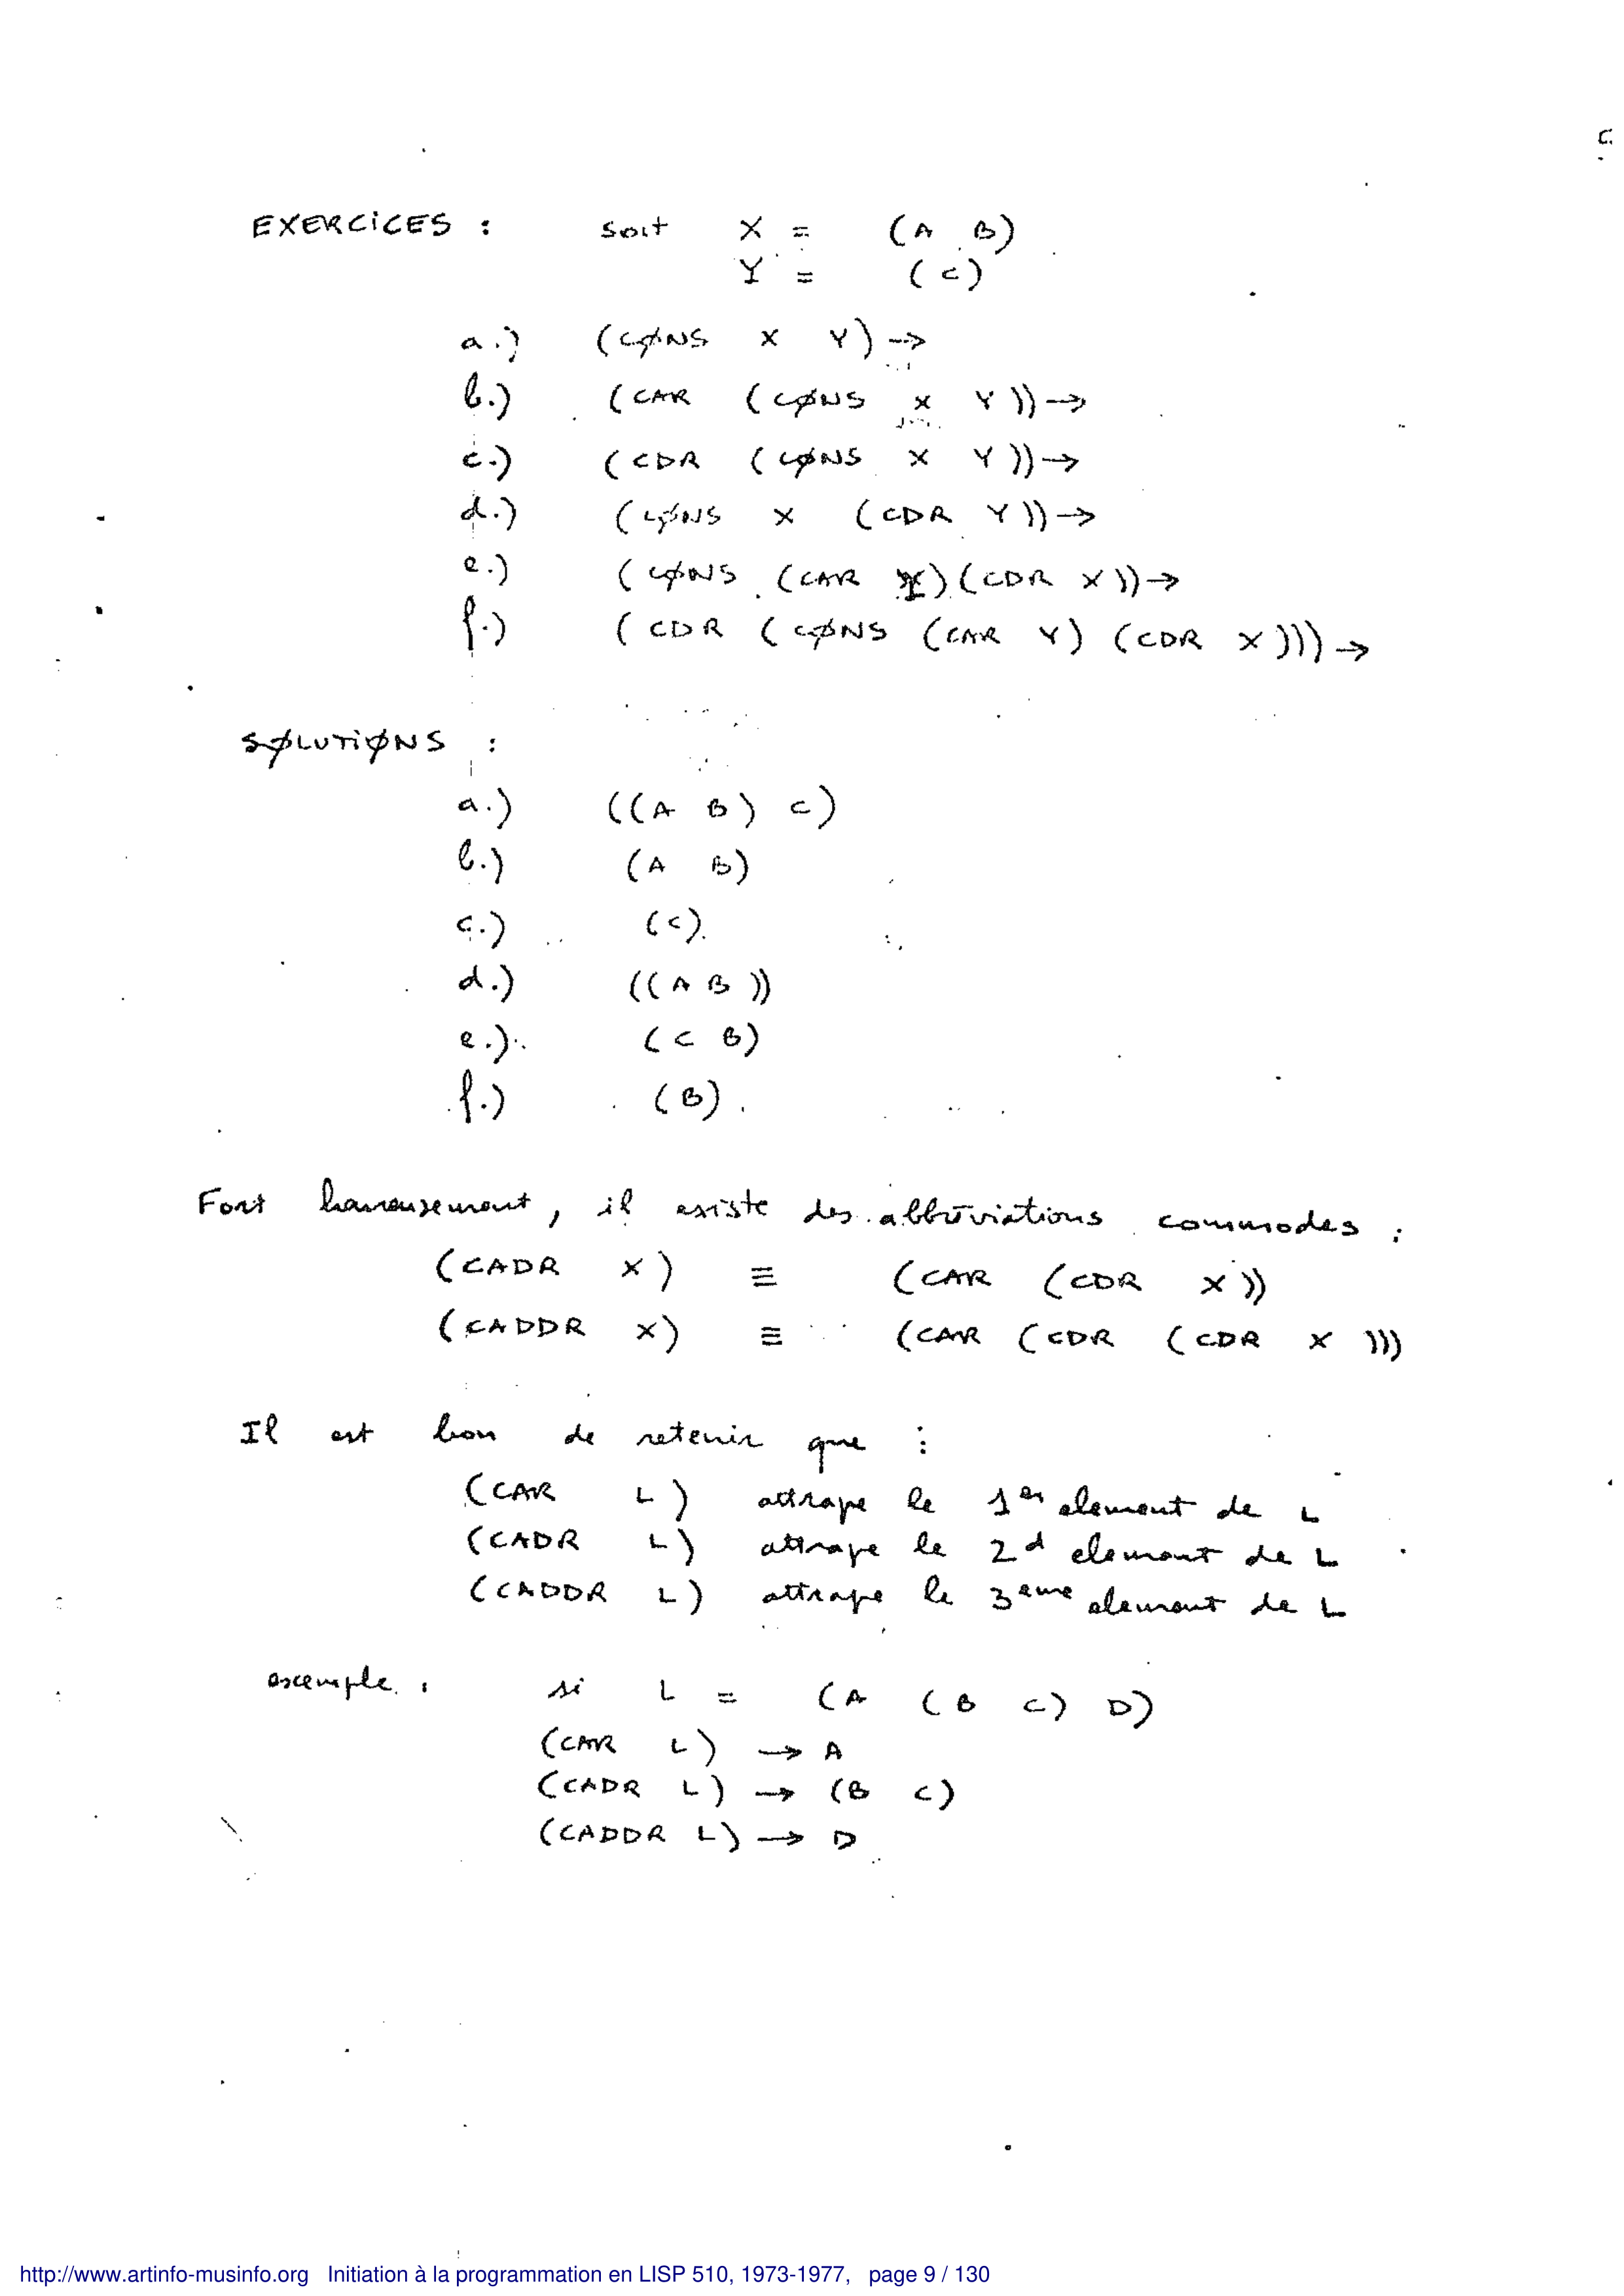 EXERCICES : soit X = (A B)
Y = (C)
a.) (CØNS X Y) →
b.) (CAR (CØNS X Y)) →
c.) (CDR (CØNS X Y)) →
d.) (CØNS X (CDR Y)) →
e.) (CØNS (CAR Y) (CDR X)) →
f.) (CDR (CØNS (CAR Y) (CDR X))) →
SØLUTIØNS :
a.) ((A B) C)
b.) (A B)
c.) (C)
d.) ((A B))
e.) (C B)
f.) (B)
Fort heureusement, il existe des abbréviations commodes :
(CADR X) ≡ (CAR (CDR X))
(CADDR X) ≡ (CAR (CDR (CDR X)))
Il est bon de retenir que :
(CAR L) attrape le 1er element de L
(CADR L) attrape le 2d element de L
(CADDR L) attrape le 3eme element de L
exemple : si L = (A (B C) D)
(CAR L) → A
(CADR L) → (B C)
(CADDR L) → D
http://www.artinfo-musinfo.org Initiation à la programmation en LISP 510, 1973-1977, page 9 / 130